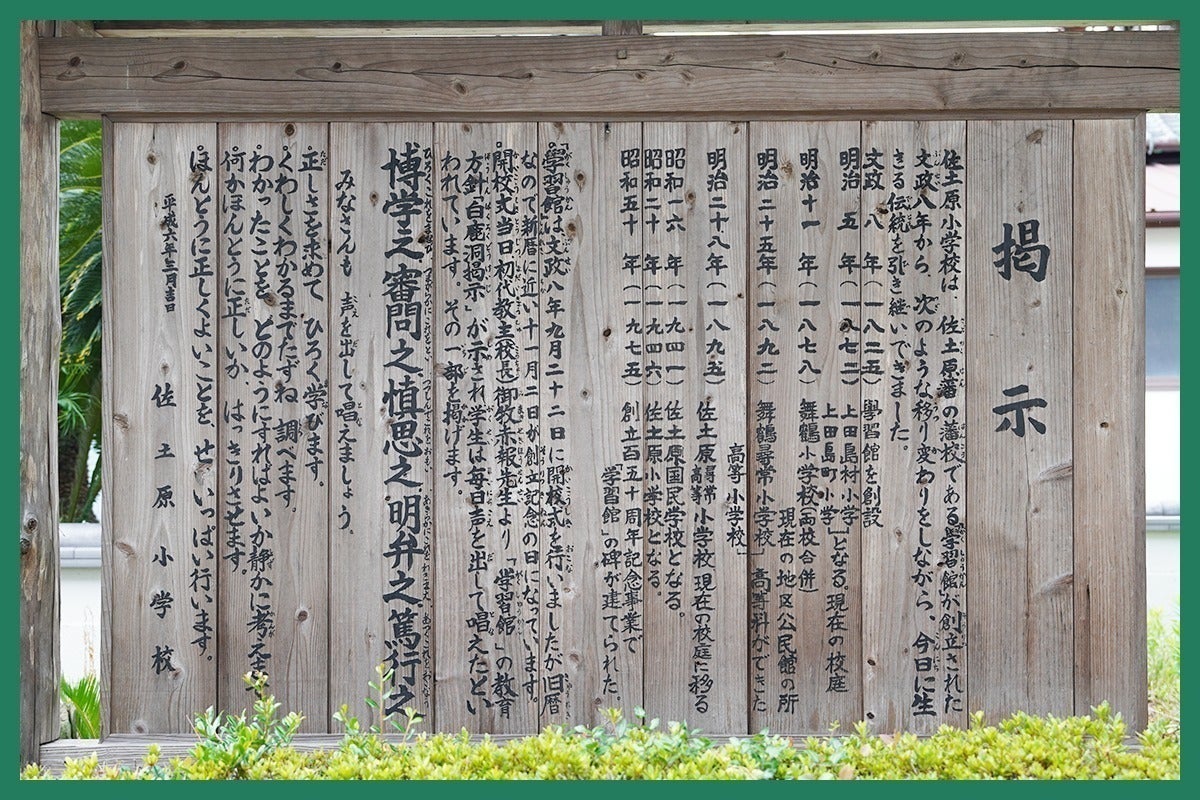 掲示
佐土原小学校は、佐土原藩の藩校である學習館が創立された
文政八年から、次のような移り変わりをしながら、今日に生
きる伝統を引き継いできました。
文政 八 年(一八二五)學習館を創設
明治 五 年(一八七二)上田島村小学 上田島町小学 となる。現在の校庭
明治十一 年(一八七八)舞鶴小学校(両校合併) 現在の地区公民館の所
明治二十五年(一八九二)舞鶴尋常小学校 高等科ができた
高等小学校
明治二十八年(一八九五)佐土原尋常高等小学校 現在の校庭に移る
昭和一六 年(一九四一)佐土原国民学校となる。
昭和二十 年(一九四六)佐土原小学校となる。
昭和五十 年(一九七五)創立百五十周年記念事業で
「学習館」の碑が建てられた。
「學習館」は文政八年九月二十二日に開校式を行いましたが旧暦
なので新暦に近い十一月二日が創立記念の日になっています。
開校式当日初代教主(校長)御牧赤報先生より「学習館」の教育
方針「白鹿洞掲示」が示され学生は毎日声を出して唱えたとい
われています。その一部を掲げます。
博学之審問之慎思之明弁之篤行之
みなさんも 声を出して唱えましょう。
正しさを求めて ひろく学びます。
くわしくわかるまでたずね 調べます。
わかったことを どのようにすればよいか静かに考えま
何がほんとうに正しいか、はっきりさせます。
ほんとうに正しくよいことを、せいいっぱい行います。
平成六年三月吉日
佐土原小学校